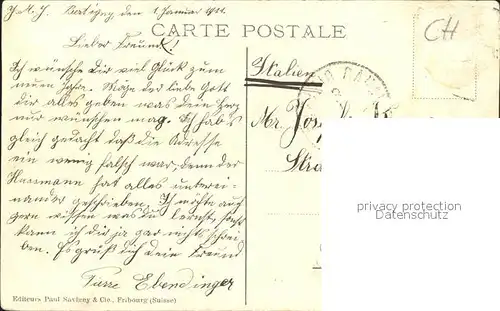 J. M. J. Bertigny, den 1. Januar 1911.
CARTE POSTALE
CH
Lieber Freund!
Ich wünsche Dir viel Glück zum
neuen Jahre. Möge der liebe Gott
Dir alles geben was dein Herz
nur wünschen mag. Ich hab's
gleich gedacht daß die Adresse
ein wenig falsch war, denn der
hat alles unterei-
nander geschrieben. Ich möchte auch
gern wissen was du lernst, sonst
kann ich dir ja gar nichts schrei-
ben. Es grüß dich dein Freund
Pierre Ebendinger
Editeurs Paul Savigny & Co., Fribourg (Suisse)
Italien
Mr. Jos
Stra
privacy protection
Datenschutz